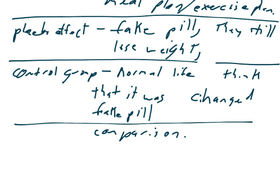 meal plan/exercise plan.
placebo effect - fake pill, They still
lose weight,
control group - normal life think
that it was changed
fake pill
comparison.